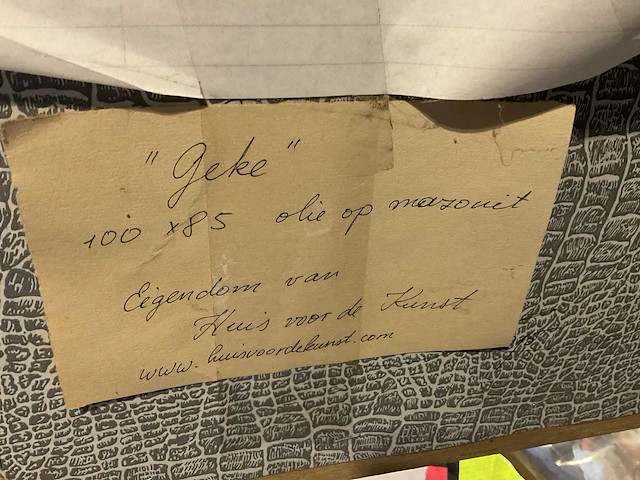 "Geke"
100 x 85 olie op mazonit
Eigendom van
Huis voor de Kunst
www.huisvoordekunst.com